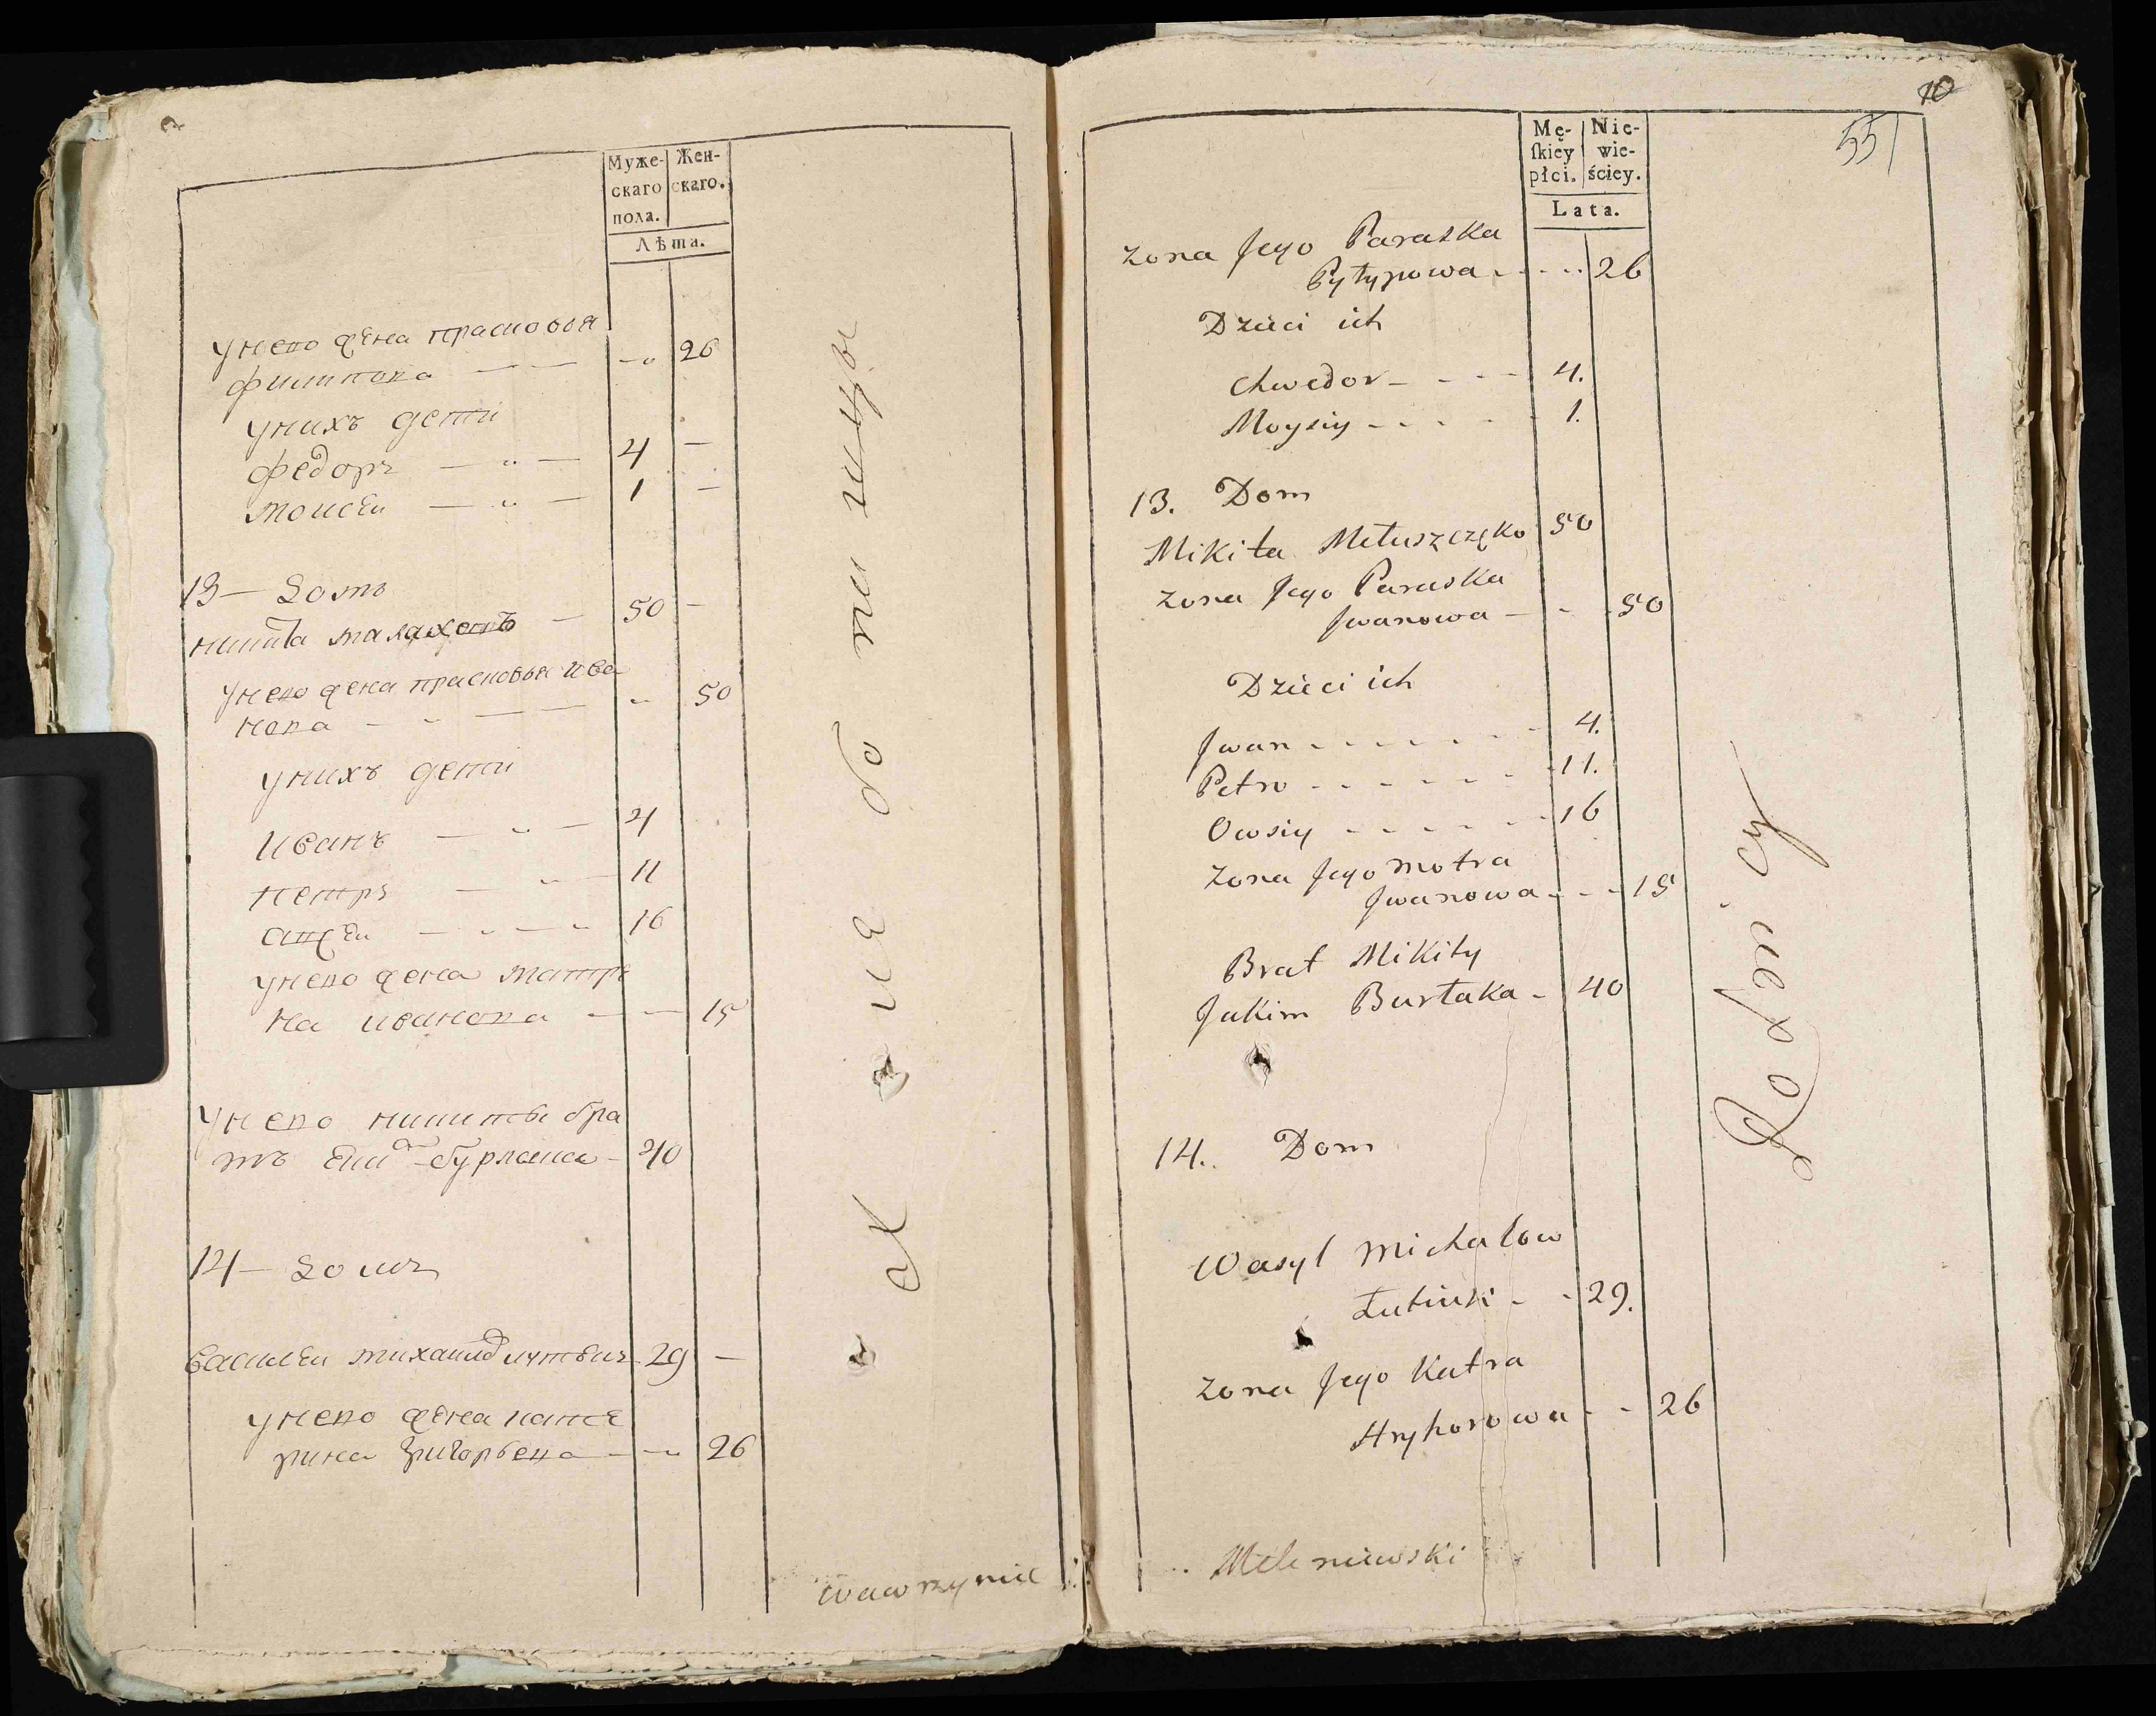 Муже-
скаго
пола.
Жен-
скаго.
Лѣта.
унего жена прасковья
филипова 26
унихъ дети
федоръ 4
моисеи 1
13 домъ
никита 50
унего жена прасковья ива
нова 50
унихъ дети
Иванъ 4
петръ 11
16
унего жена матре
на иванова 15
унего никиты бра
тъ бурлака 40
14 домъ
василеи михаилов 29
унего жена кате
рина григорьева 26
wawrzyniec
10
55
Mę-
ſkiey
płci.
Nie-
wie-
ściey.
Lata.
zona Jego Paraska
Pylypowa 26
Dzieci ich
Chwedor 4.
Moysiy 1.
13. Dom
Mikita 50
zona Jego Paraska
Jwanowa 50
Dzieci ich
Jwan 4.
Petro 11.
Owsiy 16
zona Jego Motra
Jwanowa 15
Brat Mikity
Jakim Burłaka 40
14. Dom
Wasyl Michalow
29.
zona Jego Katra
Hryhorowa 26
Meleniewski